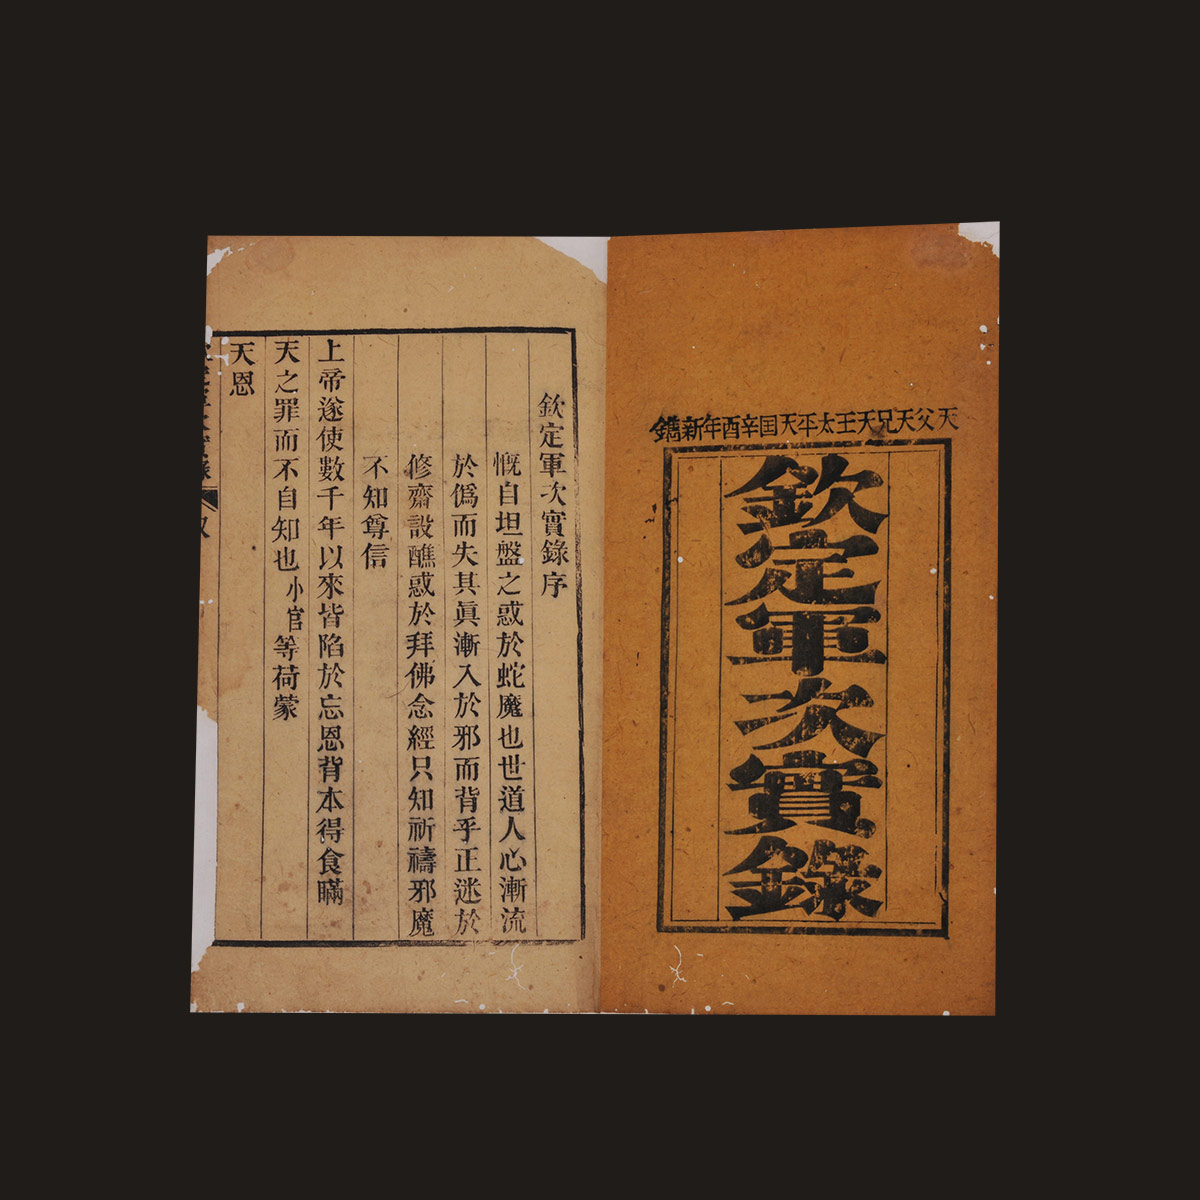 天父天兄天王太平天囯辛酉年新鐫
欽定軍次實錄
欽定軍次實錄序
慨自坦盤之惑於蛇魔也世道人心漸流
於僞而失其眞漸入於邪而背乎正迷於
修齋設醮惑於拜佛念經只知祈禱邪魔
不知尊信
上帝遂使數千年以來皆陷於忘恩背本得食瞞
天之罪而不自知也小官等荷蒙
天恩